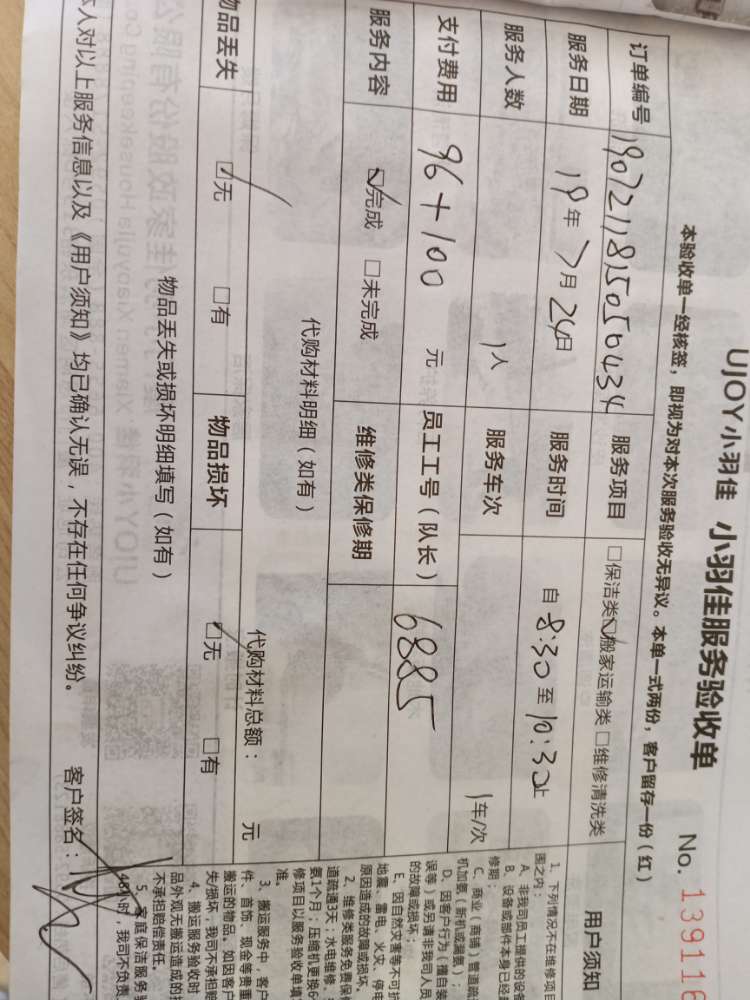 UJOY小羽佳 小羽佳服务验收单
No. 139116
本验收单一经核签，即视为对本次服务验收无异议。本单一式两份，客户留存一份（红）
订单编号 190721181505 6434 服务项目 □保洁类 ☑搬家运输类 □维修清洗类
服务日期 19年 7月 24日 服务时间 自 8:30 至 10:30止
服务人数 1人 服务车次 1车/次
支付费用 96+100 元 员工工号（队长） 6885
服务内容 ☑完成 □未完成 维修类保修期
代购材料明细（如有）
代购材料总额： 元
物品丢失 ☑无 □有 物品损坏 ☑无 □有
物品丢失或损坏明细填写（如有）
本人对以上服务信息以及《用户须知》均已确认无误，不存在任何争议纠纷。 客户签名：
用户须知
1、下列情况不在维修项目
围之内：
A、非我司员工提供的设备
B、设备或部件本身已经
修期；
C、商业（商铺）管道疏
机加氨（新机或漏氨）；
D、因客户行为（擅自装
误等）或另请非我司人员
的故障或损坏；
E、因自然灾害等不可抗
地震、雷电、火灾、停电
原因造成的故障或损坏。
2、维修类服务免费保修
道疏通3天；水电维修、
氨1个月；压缩机更换6
修项目以服务验收单填
准。
3、搬运服务中，客户
件、首饰、现金等贵重
搬运的物品。如因客户
失/损坏，我司不承担赔
4、搬运服务验收时
品外观无搬运造成的损
不承担赔偿责任。
5、家庭保洁服务验
48小时，我司不负责